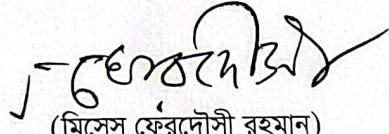 ফেরদৌসী
(মিসেস ফেরদৌসী রহমান)